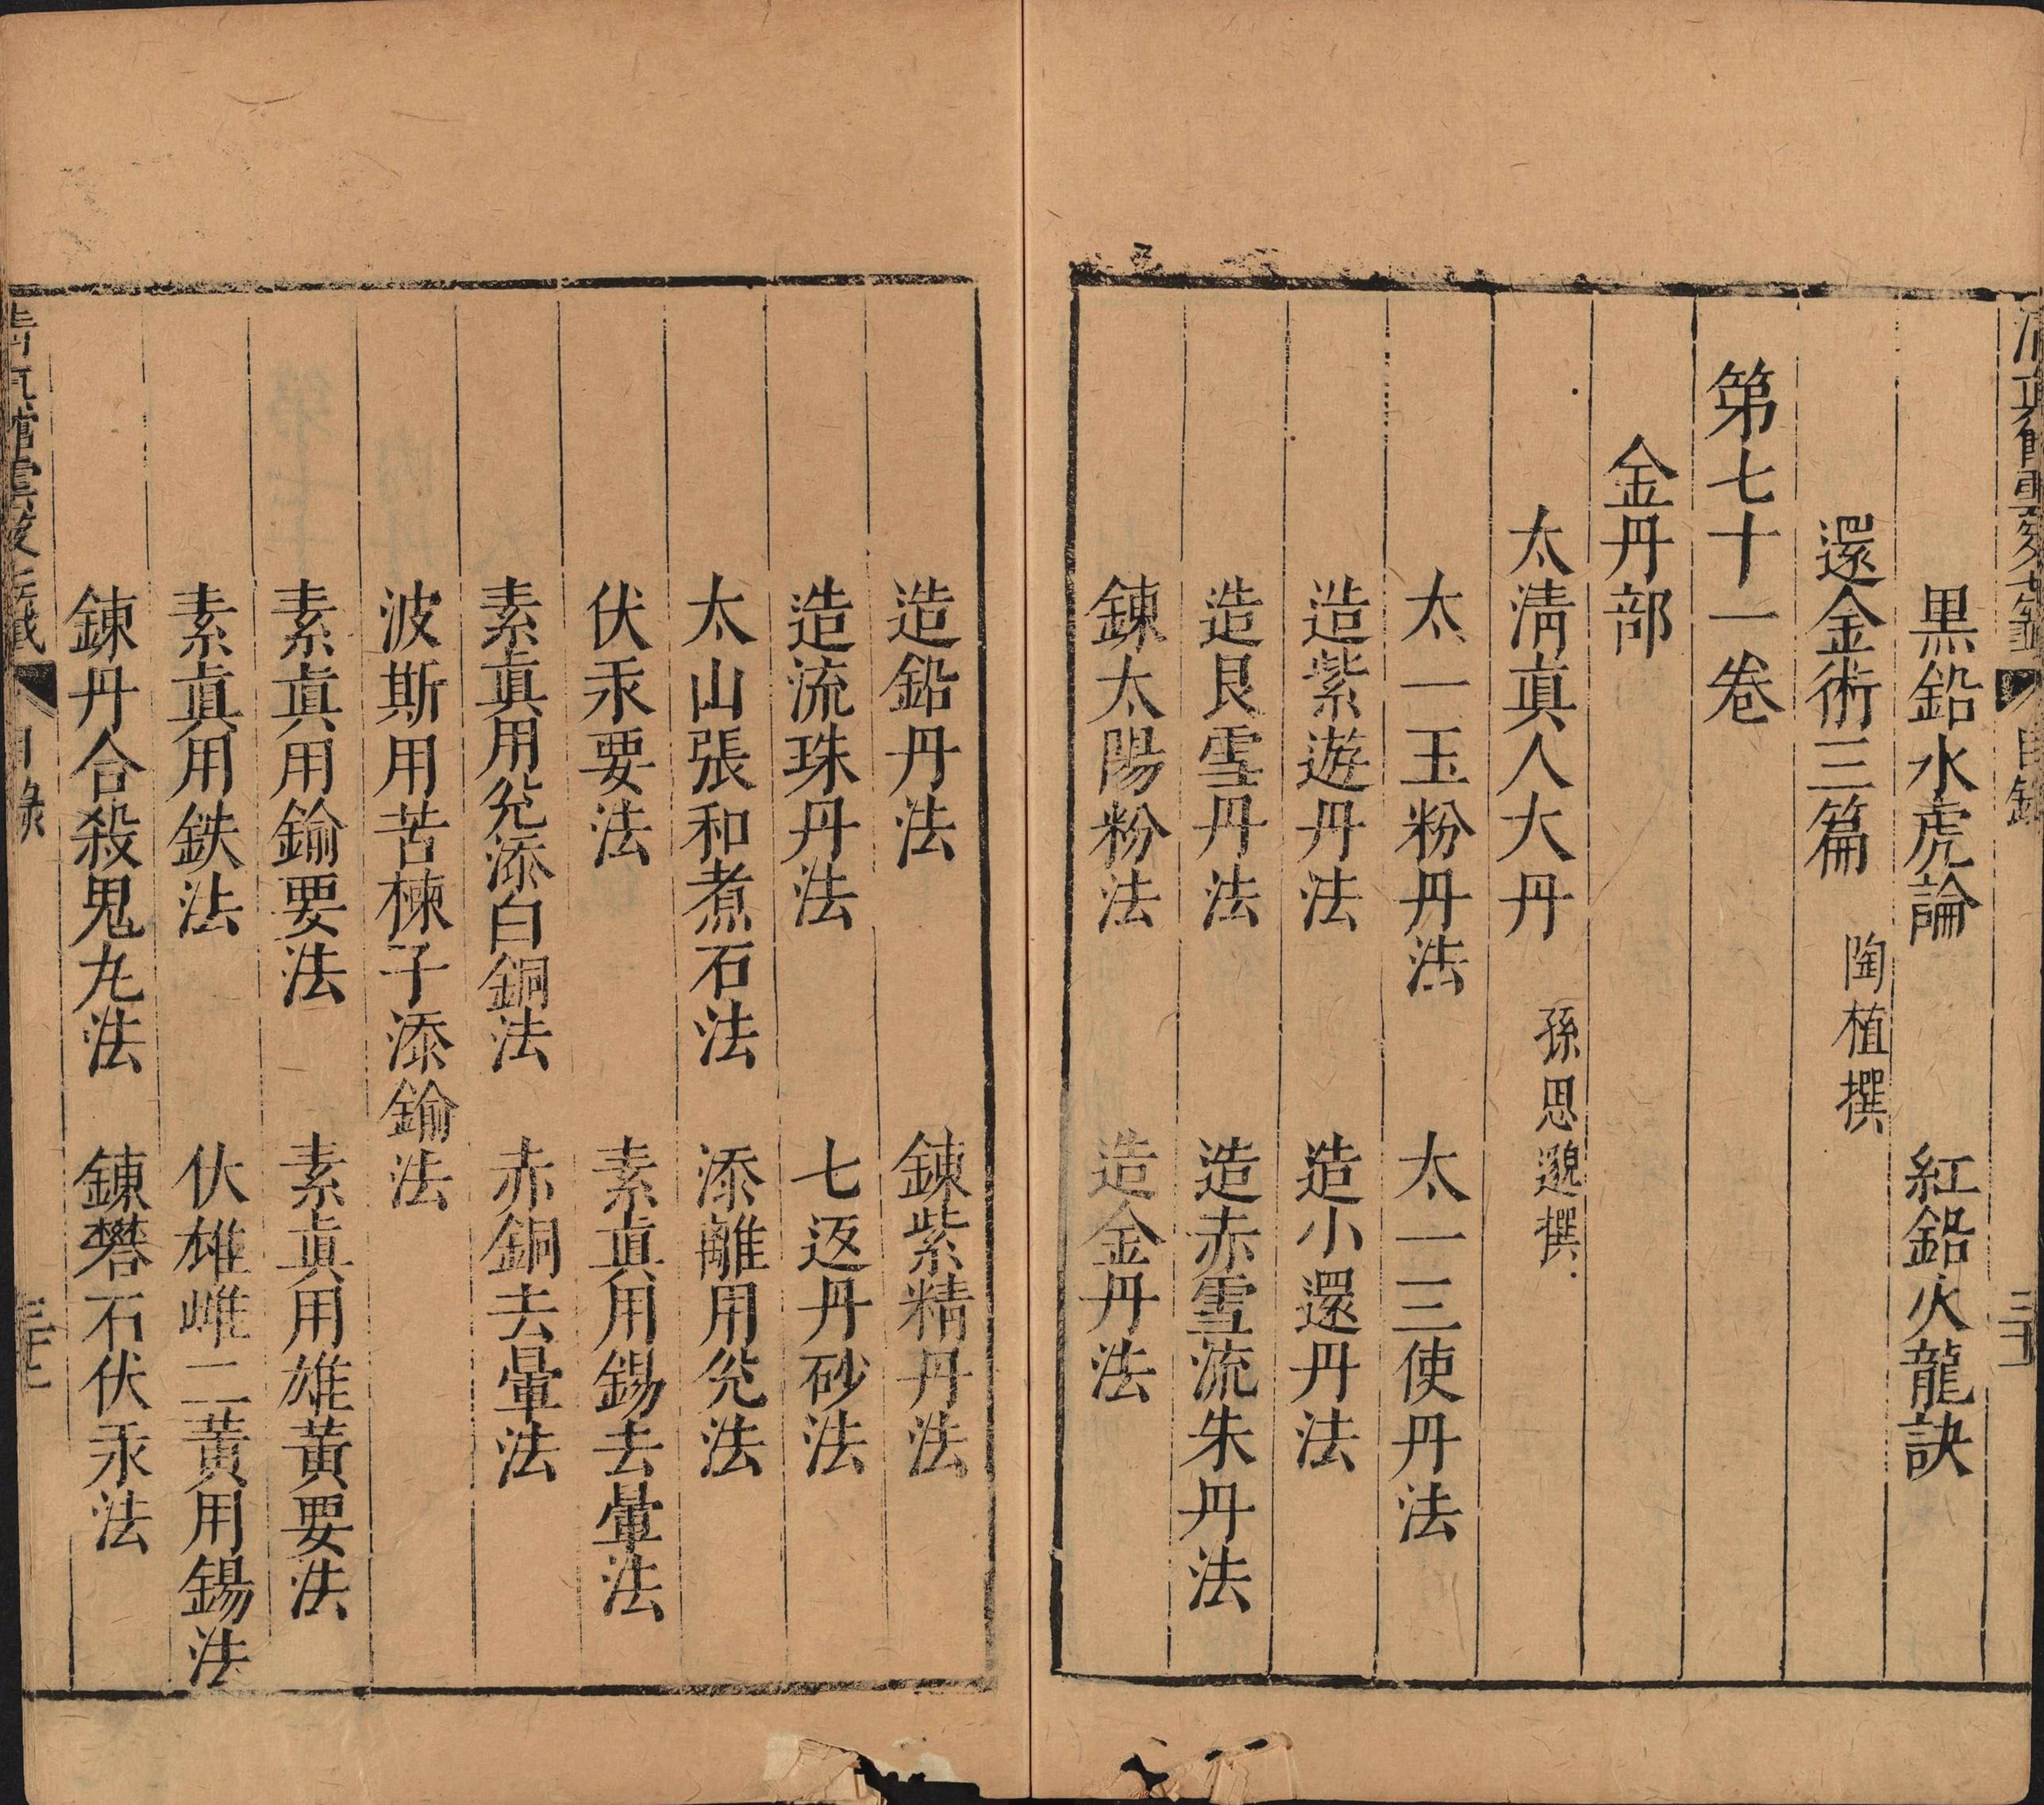 黒鉛水虎論　紅鉛火龍訣
還金術三篇　陶植撰
第七十一卷
金丹部
太淸眞人大丹　孫思邈撰
太一玉粉丹法　太一三使丹法
造紫遊丹法　造小還丹法
造艮雪丹法　造赤雪流朱丹法
鍊太陽粉法　造金丹法
造鉛丹法　鍊紫精丹法
造流珠丹法　七返丹砂法
太山張和煮石法　添離用兊法
伏汞要法　素眞用錫去暈法
素眞用兊添白銅法　赤銅去暈法
波斯用苦楝子添鍮法
素眞用鍮要法　素眞用雄黃要法
素眞用鉄法　伏雄雌二黃用錫法
鍊丹合殺鬼丸法　鍊礬石伏汞法
目錄